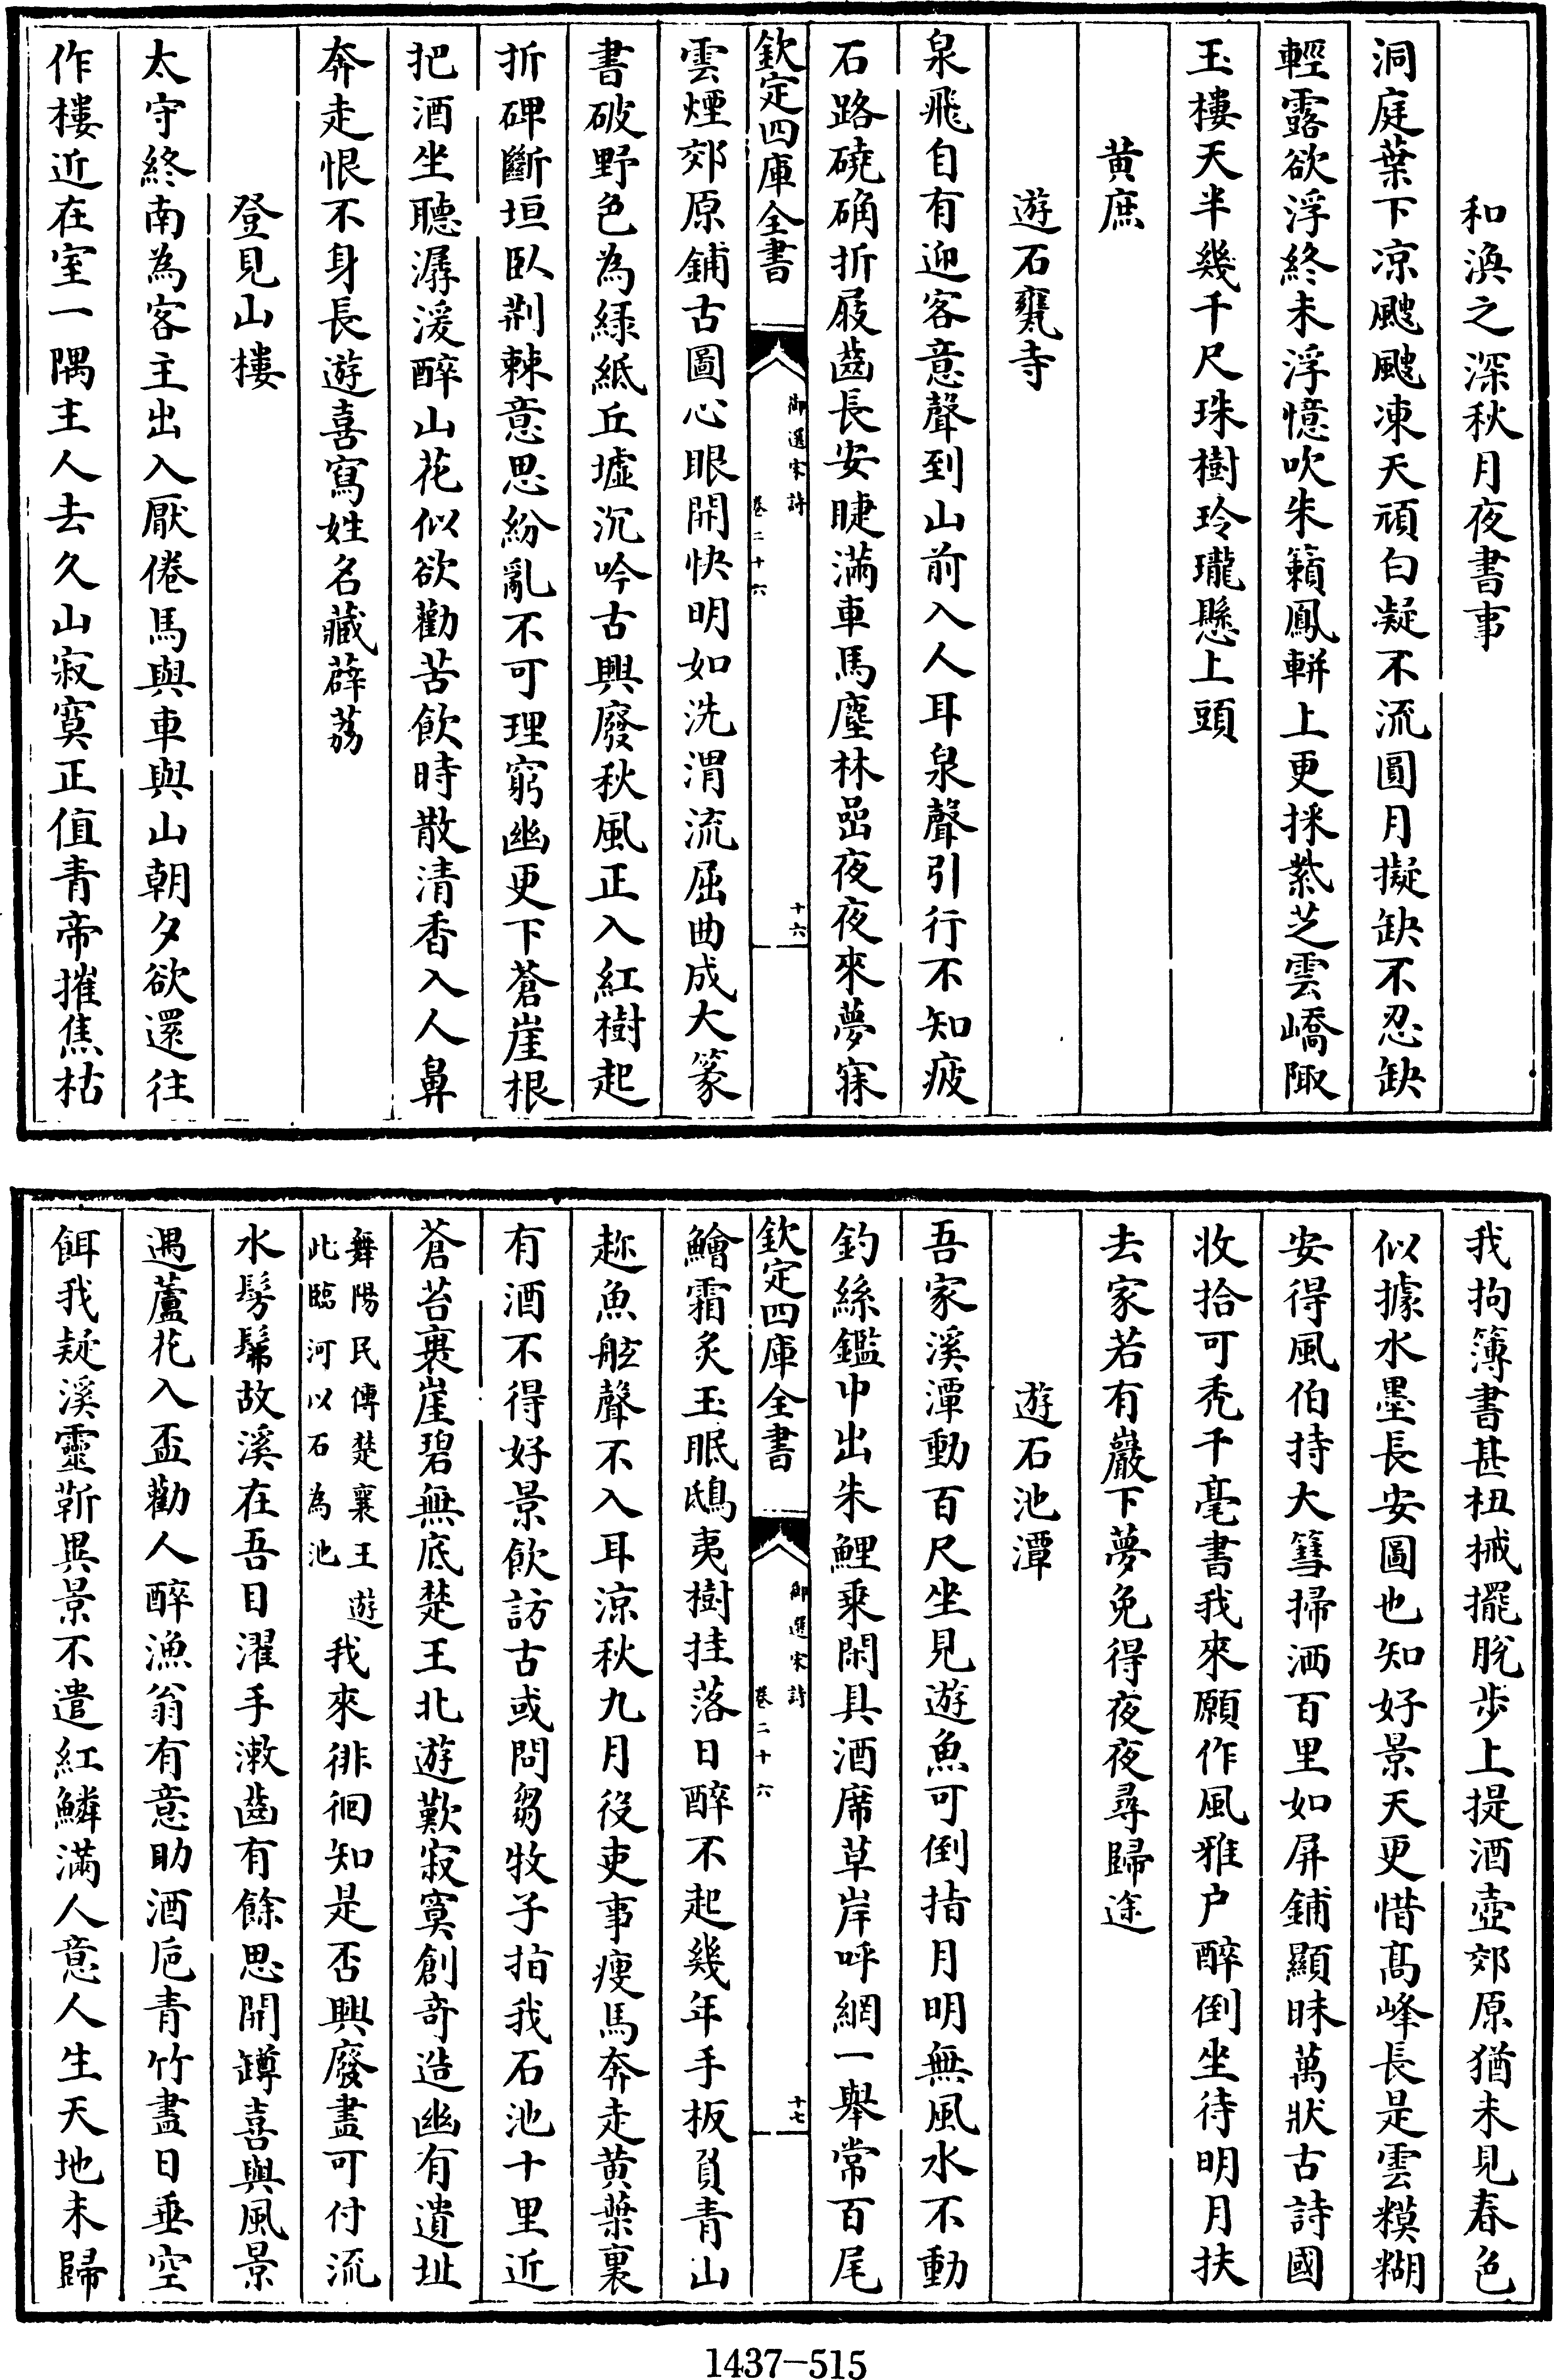 和渙之深秋月夜書事
洞庭葉下凉颼颼凍天頑白凝不流圓月擬缺不忍缺
輕露欲浮終未浮憶吹朱籟鳳輧上更採紫芝雲嶠陬
玉樓天半幾千尺珠樹玲瓏懸上頭
黄庶
遊石甕寺
泉飛自有迎客意聲到山前入人耳泉聲引行不知疲
石路磽确折屐齒長安睫滿車馬塵林嵒夜夜來夢寐
欽定四庫全書
御選宋詩
卷二十六
十六
雲煙郊原鋪古圖心眼開快明如洗渭流屈曲成大篆
書破野色為緑紙丘墟沉吟古興廢秋風正入紅樹起
折碑斷垣臥荆棘意思紛亂不可理窮幽更下蒼崖根
把酒坐聽潺湲醉山花似欲勸苦飲時散清香入人鼻
奔走恨不身長遊喜寫姓名藏薜荔
登見山樓
太守終南為客主出入厭倦馬與車與山朝夕欲還往
作樓近在室一隅主人去久山寂寞正值青帝摧焦枯
我拘簿書甚杻械擺脱步上提酒壺郊原猶未見春色
似據水墨長安圖也知好景天更惜髙峰長是雲糢糊
安得風伯持大篲掃洒百里如屏鋪顯昧萬狀古詩國
收拾可秃千毫書我來願作風雅户醉倒坐待明月扶
去家若有巖下夢免得夜夜尋歸途
遊石池潭
吾家溪潭動百尺坐見遊魚可倒指月明無風水不動
釣絲鑑中出朱鯉乘閑具酒席草岸呼網一舉常百尾
欽定四庫全書
御選宋詩
卷二十六
十七
鱠霜炙玉眠鴟夷樹挂落日醉不起幾年手板負青山
趂魚舷聲不入耳凉秋九月役吏事瘦馬奔走黄葉裏
有酒不得好景飲訪古或問芻牧子指我石池十里近
蒼苔裹崖碧無底楚王北遊歎寂寞創竒造幽有遺址
舞陽民傳楚襄王遊
此臨河以石為池
我來徘徊知是否興廢盡可付流
水髣髴故溪在吾目濯手漱齒有餘思開罇喜與風景
遇蘆花入盃勸人醉漁翁有意助酒巵青竹盡日垂空
餌我疑溪靈靳異景不遣紅鱗滿人意人生天地未歸
1437-515